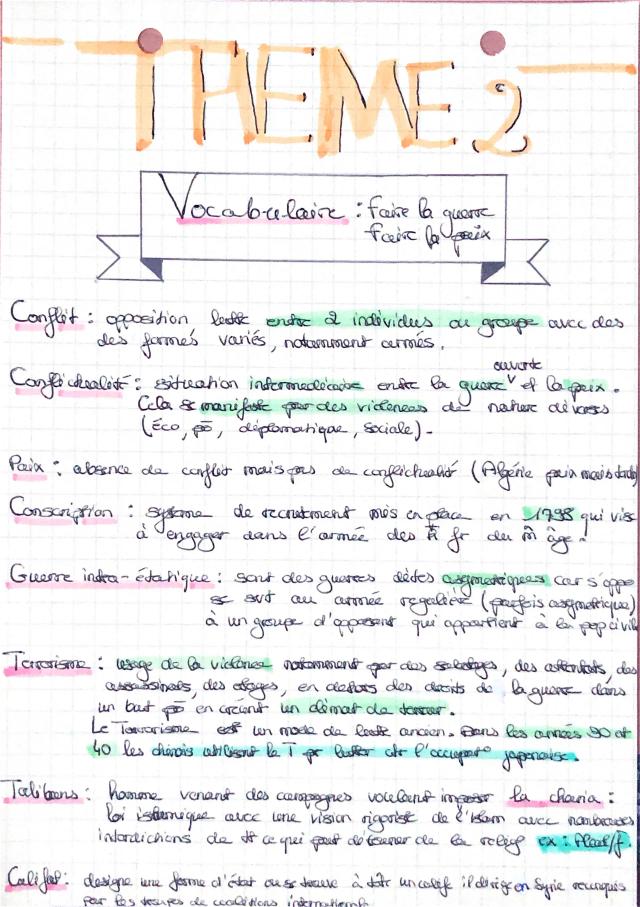 THEME 2
Vocabulaire : faire la guerre
faire la paix
Conflit : opposition lutte entre 2 individus ou groupe avec des
des formes variés, notamment armés.
ouverte
Conflictualité : situation intermédiaire entre la guerre v et la paix.
Cela se manifeste par des violences de nature diverses
(éco, pō, diplomatique, sociale).
Paix : absence de conflit mais pas de conflictualité (Algérie paix mais
Conscription : système de recrutement mis en place en 1798 qui vise
à engager dans l'armée des fr du m̂ âge.
Guerre intra-étatique : sont des guerres dites asymétriques car s'oppo
se svt au armée régulière (parfois assymétrique)
à un groupe d'opposant qui appartient à la pop civile
Terrorisme : usage de la violence notamment par des sabotages, des attentats, des
assassinats, des otages, en dehors des droits de la guerre dans
un but pō en créant un climat de terreur.
Le Terrorisme est un mode de lutte ancien. Dans les années 30 et
40 les chinois utilisent le T pr lutter ctr l'occupat° japonaise.
Talibans : homme venant des campagnes voulant imposer la charia :
loi islamique avec une vision rigoriste de l'islam avec nombreuses
interdictions de tt ce qui peut détourner de la relig° ex :
Califat : designe une forme d'état ou se trouve à tête un calife il dirige en Syrie
par les troupes de coalitions